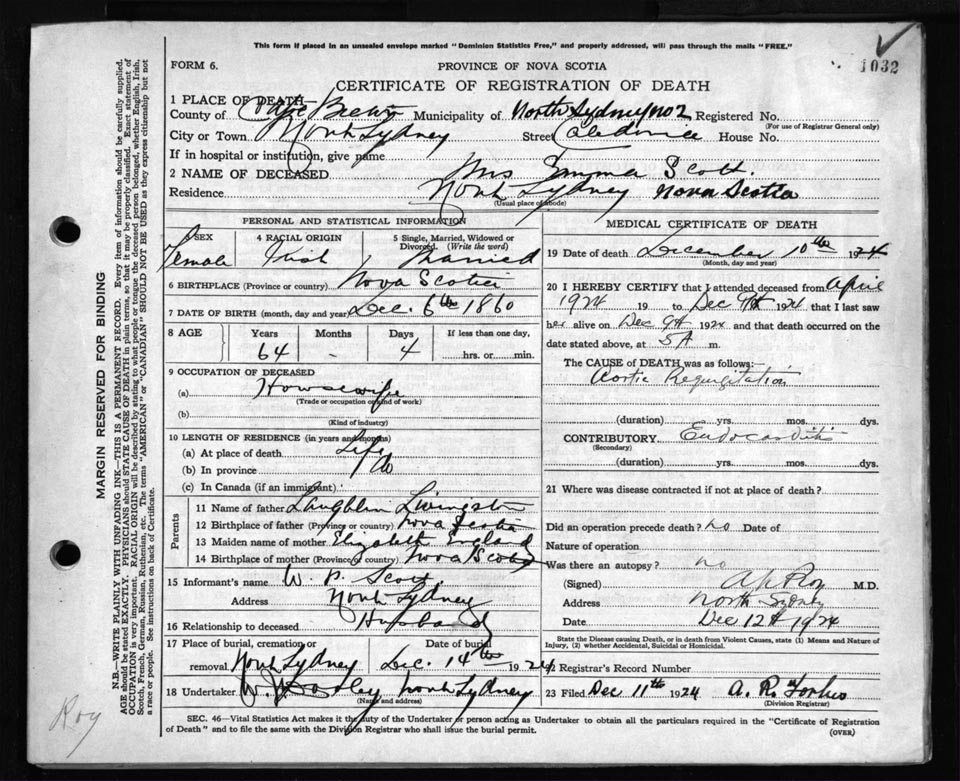 This form if placed in an unsealed envelope marked "Dominion Statistics Free," and properly addressed, will pass through the mails "FREE."
1032
FORM 6.
PROVINCE OF NOVA SCOTIA
CERTIFICATE OF REGISTRATION OF DEATH
1 PLACE OF DEATH
County of Cape Breton Municipality of North Sydney No 2 Registered No.
(For use of Registrar General only)
City or Town North Sydney Street Caledonia House No.
If in hospital or institution, give name
2 NAME OF DECEASED Mrs Emma Scott.
Residence North Sydney Nova Scotia
(Usual place of abode)
PERSONAL AND STATISTICAL INFORMATION
SEX Female
4 RACIAL ORIGIN Irish
5 Single, Married, Widowed or Divorced. (Write the word) Married
6 BIRTHPLACE (Province or country) Nova Scotia
7 DATE OF BIRTH (month, day and year) Dec. 6th 1860
8 AGE Years Months Days If less than one day,
64 - 4 hrs. or min.
9 OCCUPATION OF DECEASED
(a) Housewife
(Trade or occupation or kind of work)
(b)
(Kind of industry)
10 LENGTH OF RESIDENCE (in years and months)
(a) At place of death Life
(b) In province Do
(c) In Canada (if an immigrant)
Parents
11 Name of father Laughlin Livingston
12 Birthplace of father (Province or country) Nova Scotia
13 Maiden name of mother Elizabeth England
14 Birthplace of mother (Province or country) Nova Scotia
15 Informant's name W. P. Scott.
Address North Sydney
16 Relationship to deceased Husband
17 Place of burial, cremation or Date of burial
removal North Sydney Dec. 14th 1924
18 Undertaker North Sydney
(Name and address)
MEDICAL CERTIFICATE OF DEATH
19 Date of death December 10th 1924
(Month, day and year)
20 I HEREBY CERTIFY that I attended deceased from April
1924 19 to Dec 9th 1924 that I last saw
her alive on Dec 9th 1924 and that death occurred on
date stated above, at 5 A m.
The CAUSE of DEATH was as follows:
Aortic Regurgitation
(duration) yrs. mos. dys.
CONTRIBUTORY Endocarditis
(Secondary)
(duration) yrs. mos. dys.
21 Where was disease contracted if not at place of death?
Did an operation precede death? no Date of
Nature of operation
Was there an autopsy? no
(Signed) Roy M.D.
Address North Sydney
Date Dec 12th 1924
State the Disease causing Death, or in death from Violent Causes, state (1) Means and Nature of
Injury, (2) whether Accidental, Suicidal or Homicidal.
22 Registrar's Record Number
23 Filed Dec 11th 1924 A. R. Forbes
(Division Registrar)
SEC. 46—Vital Statistics Act makes it the duty of the Undertaker or person acting as Undertaker to obtain all the particulars required in the "Certificate of Registration
of Death" and to file the same with the Division Registrar who shall issue the burial permit.
(OVER)
MARGIN RESERVED FOR BINDING
N.B.—WRITE PLAINLY WITH UNFADING INK—THIS IS A PERMANENT RECORD. Every item of information should be carefully supplied.
AGE should be stated EXACTLY. PHYSICIANS should STATE CAUSE OF DEATH in plain terms, so that it may be properly classified. Exact statement of
OCCUPATION is very important. RACIAL ORIGIN will be described by stating to what people or tongue the deceased person belonged, whether English, Irish,
Scotch, French, German, Russian, Ruthenian, etc. The terms "AMERICAN" or "CANADIAN" SHOULD NOT BE USED as they express citizenship but not
a race or people. See instructions on back of Certificate.
Roy